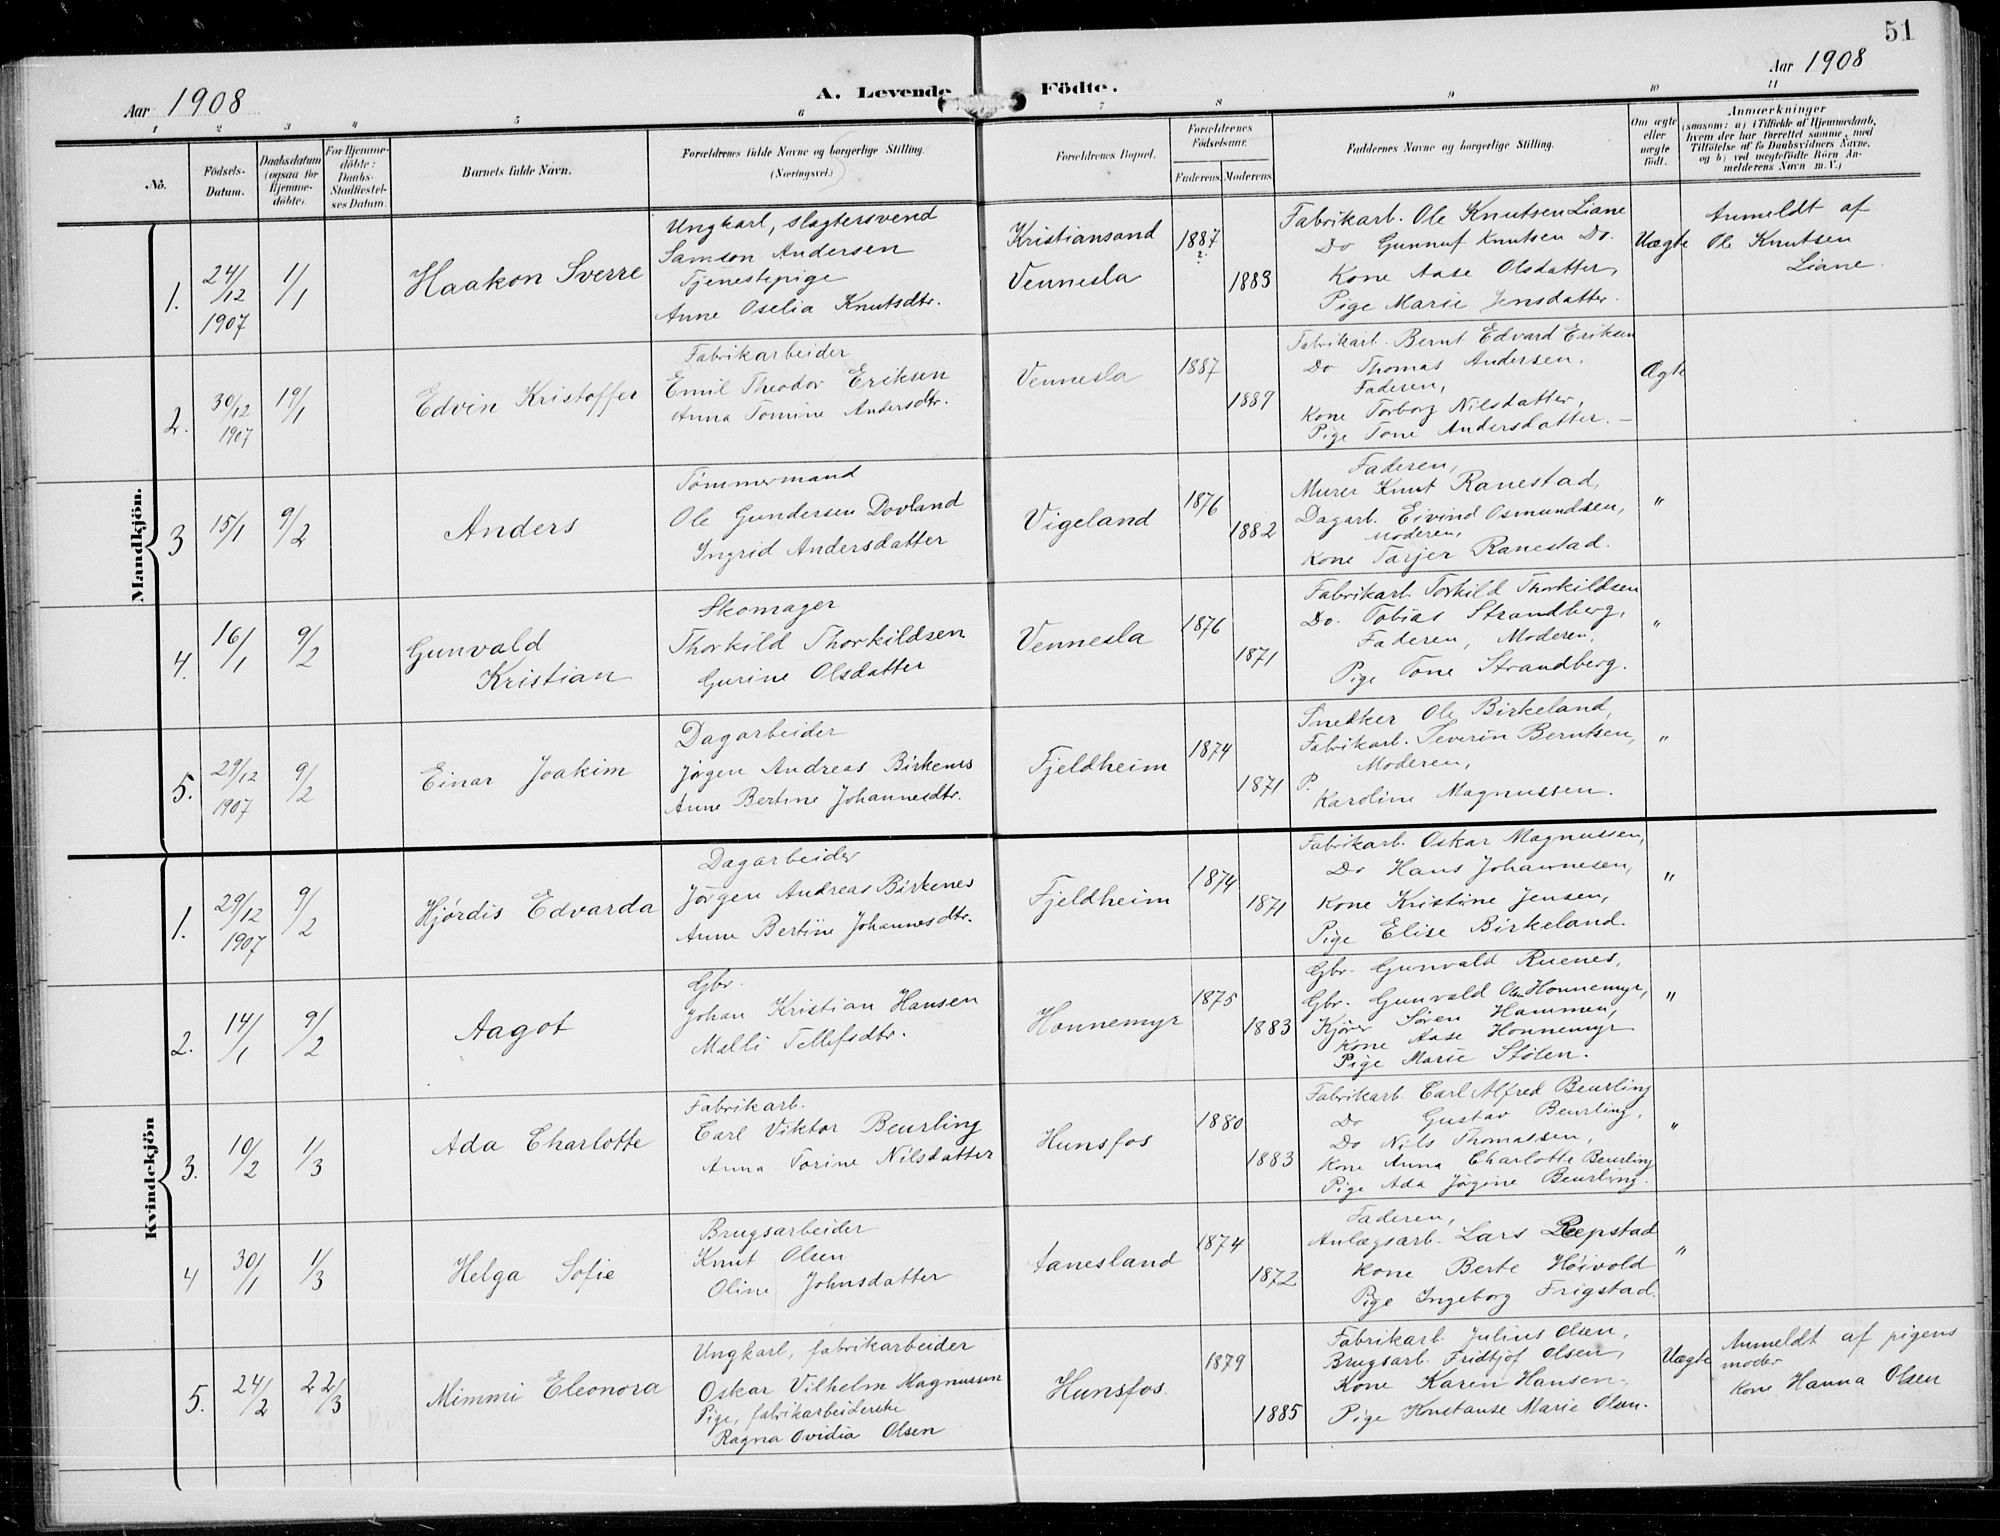 51
Aar 1908
A. Levende Födte.
Aar 1908
1 2 3 4 5 6 7 8 9 10 11
No.
Födsels-
Datum.
Daabsdatum
(ogsaa for
Hjemme-
döbte).
For Hjemme-
döbte:
Daabs-
Stadfæstel-
ses Datum.
Barnets fulde Navn.
Forældrenes fulde Navne og borgerlige Stilling.
(Næringsvei.)
Forældrenes Bopæl.
Forældrenes
Födselsaar.
Faderens. Moderens.
Faddernes Navne og borgerlige Stilling.
Om ægte
eller
uægte
födt.
Anmærkninger
(saasom: a) i Tilfælde af Hjemmedaab,
hvem der har forrettet samme, med
Tilföielse af to Daabsvidners Navne,
og b) ved uægtefödte Börn An-
melderens Navn m. V.)
Mandkjön.
1.
24/12
1907
1/1
Haakon Sverre
Ungkarl, slagtersvend
Samson Andersen
Tjenestepige
Anne Oselia Knutsdtr.
Kristiansand
Vennesla
1887
?
1883
Fabrikarb. Ole Knutsen Liane
Do Gunnuf Knutsen Do.
Kone Aase Olsdatter,
Pige Marie Jensdatter.
Uægte
Anmeldt af
Ole Knutsen
Liane.
2.
30/12
1907
19/1
Edvin Kristoffer
Fabrikarbeider
Emil Theodor Eriksen
Anna Tomine Andersdtr.
Vennesla
1887
1889
Fabrikarb. Bernt Edvard Eriksen
Do Thomas Andersen,
Faderen,
Kone Torborg Nilsdatter,
Pige Tone Andersdatter. —
Ægte
3
15/1
9/2
Anders
Tömmermand
Ole Gundersen Dovland
Ingrid Andersdatter
Vigeland
1876
1882
Faderen,
Murer Knut Ranestad,
Dagarb. Eivind Osmundsen,
Moderen,
Kone Tarjer Ranestad.
"
4.
16/1
9/2
Gunvald
Kristian
Skomager
Thorkild Thorkildsen
Gurine Olsdatter
Vennesla
1876
1871
Fabrikarb. Torkild Thorkildsen
Do. Tobias Strandberg,
Faderen, Moderen,
Pige Tone Strandberg.
"
5.
29/12
1907
9/2
Einar Joakim
Dagarbeider
Jörgen Andreas Birkenes
Anne Bertine Johannesdtr.
Fjeldheim
1874
1871
Snedker Ole Birkeland,
Fabrikarb. Severin Berntsen,
Moderen,
P. Karoline Magnussen.
"
Kvindekjön
1.
29/12
1907
9/2
Hjördis Edvarda
Dagarbeider
Jörgen Andreas Birkenes
Anne Bertine Johannesdtr.
Fjeldheim
1874
1871
Fabrikarb. Oskar Magnussen,
Do Hans Johannesen,
Kone Kristine Jensen,
Pige Elise Birkeland.
"
2.
14/1
9/2
Aagot
Gbr.
Johan Kristian Hansen
Malli Tellefsdtr.
Honnemyr
1875
1883
Gbr. Gunvald Ruenes,
Gbr. Gunvald Olsen Honnemyr,
Kjörer Sören Hammen,
Kone Aase Honnemyr
Pige Marie Stölen.
"
3.
10/2
1/3
Ada Charlotte
Fabrikarb.
Carl Viktor Beurling
Anna Torine Nilsdatter
Hunsfos
1880
1883
Fabrikarb. Carl Alfred Beurling
Do Gustav Beurling,
Do Nils Thomassen,
Kone Anna Charlotte Beurling
Pige Ada Jörgine Beurling.
"
4
30/1
1/3
Helga Sofie
Brugsarbeider
Knut Olsen
Oline Johnsdatter
Aanesland
1874
1872
Faderen,
Anlægsarb. Lars Repstad
Kone Berte Höivold
Pige Ingeborg Frigstad.
"
5.
24/2
22/3
Mimmi Eleonora
Ungkarl, fabrikarbeider
Oskar Vilhelm Magnussen
Pige, fabrikarbeiderske
Ragna Ovidia Olsen
Hunsfos.
1879
1885
Fabrikarb. Julius Olsen,
Brugsarb. Fridtjof Olsen,
Kone Karen Hansen.
Pige Konstanse Marie Olsen.
Uægte
Anmeldt af pigens
moder
Kone Hanna Olsen